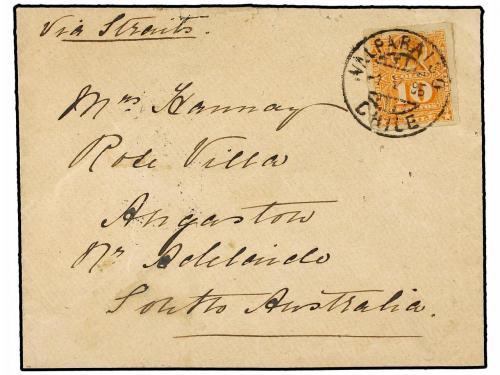 Via Straits.
VALPARAISO
95
CHILE
10
Mrs Hannay
Rose Villa
Angaston
Nr Adelaide
South Australia.